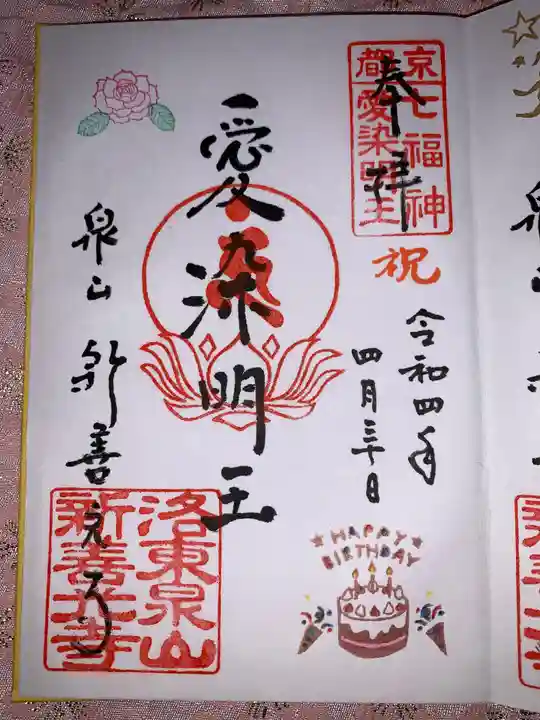 奉拝
京七福神
都愛染明王
祝
令和四年
四月三十日
愛染明王
泉山 新善光寺
洛東泉山
新善光寺
HAPPY
BIRTHDAY
泉山